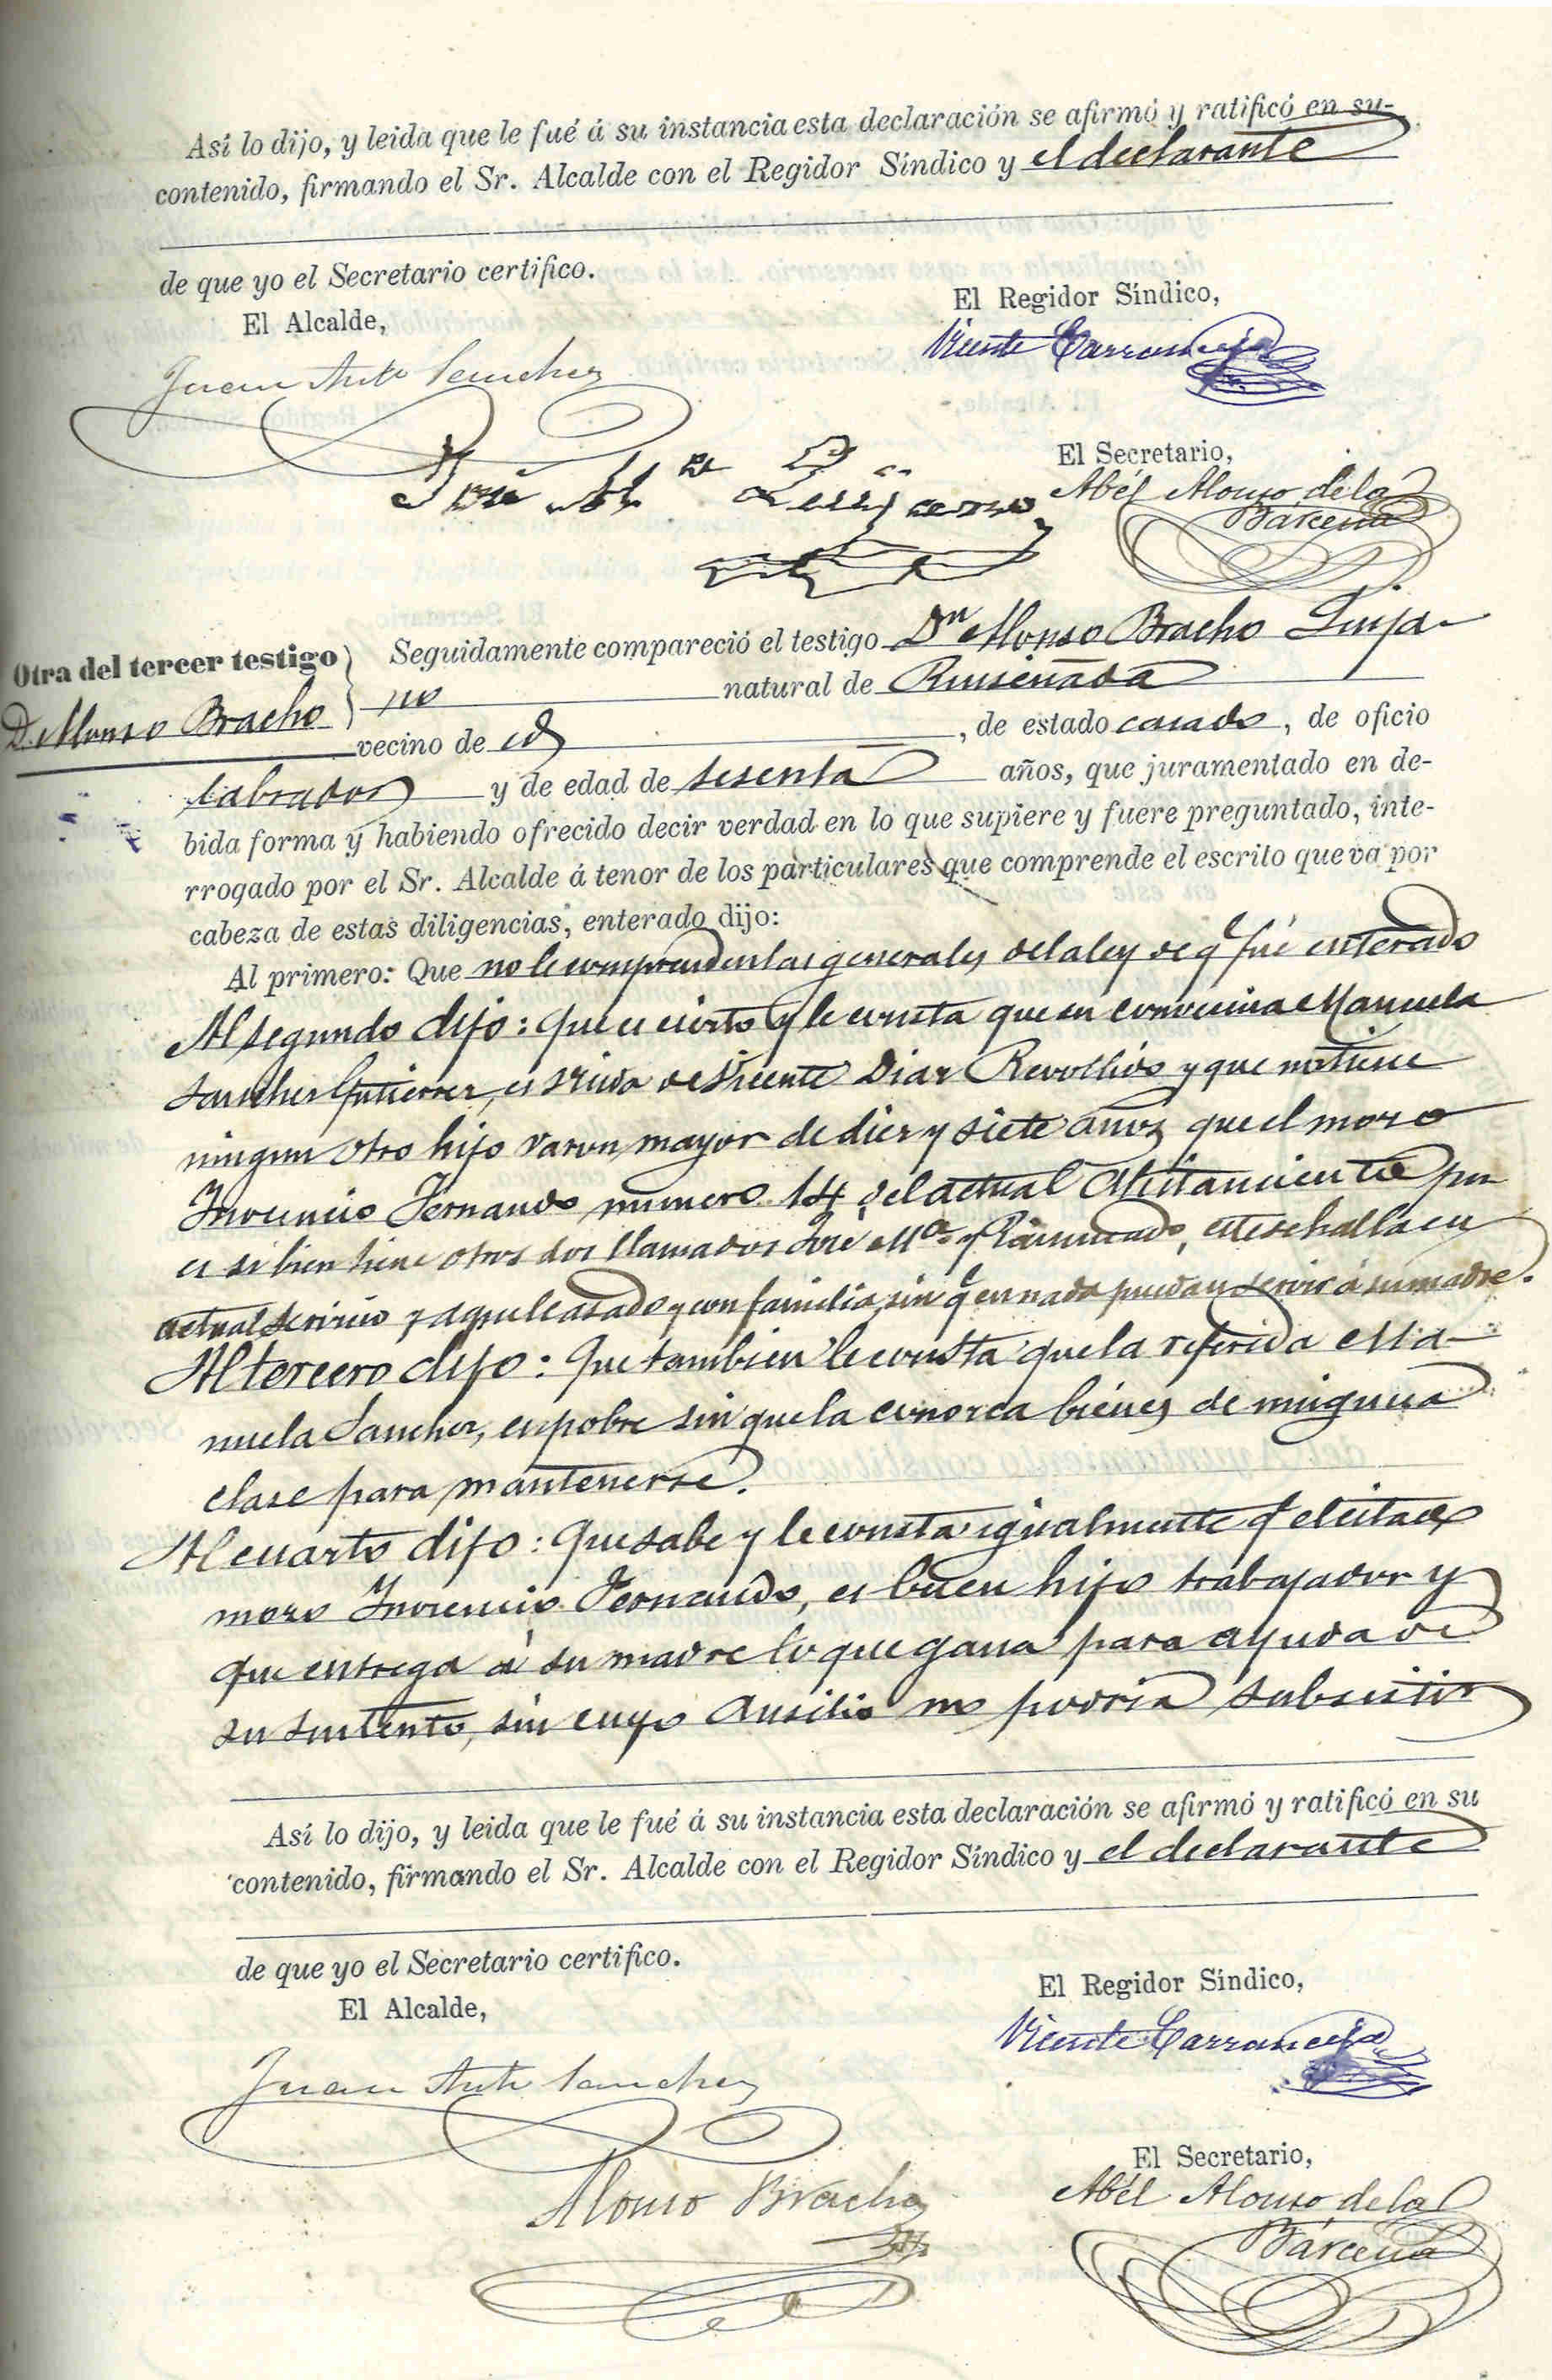 Así lo dijo, y leida que le fué á su instancia esta declaración se afirmó y ratificó en su
contenido, firmando el Sr. Alcalde con el Regidor Síndico y el declarante
de que yo el Secretario certifico.
El Alcalde,
El Regidor Síndico,
Juan Anto Sanchez
Vicente Carranceja
El Secretario,
José Mª
Abél Alonso de la
Bárcena
Otra del tercer testigo
D. Alonso Bracho
Seguidamente compareció el testigo Dn Alonso Bracho Quija-
no natural de Ruiseñada
vecino de id, de estado casado, de oficio
labrador y de edad de sesenta años, que juramentado en de-
bida forma y habiendo ofrecido decir verdad en lo que supiere y fuere preguntado, inte-
rrogado por el Sr. Alcalde á tenor de los particulares que comprende el escrito que va por
cabeza de estas diligencias, enterado dijo:
Al primero: Que no le comprenden las generales de la ley de q.e fué enterado
Al segundo dijo: Que es cierto y le consta que su convecina Manuela
Sanchez Gutierrez, es viuda de Vicente Diaz Revollido y que no tiene
ningun otro hijo varon mayor de diez y siete años que el mozo
Inocencio Fernando numero 14 del actual Alistamiento pu-
es si bien tiene otros dos llamados José Mª y Raimundo, este se halla en
actual servicio y aquel casado y con familia, sin q.e en nada puedan servir á su madre.
Al tercero dijo: Que tambien le consta que la referida Ma-
nuela Sanchez, es pobre sin que la conozca bienes de ninguna
clase para mantenerse.
Al cuarto dijo: Que sabe y le consta igualmente q.e el citado
mozo Inocencio Fernando, es buen hijo trabajador y
que entrega á su madre lo que gana para ayuda de
su sustento, sin cuyo ausilio no podria subsistir
Así lo dijo, y leida que le fué á su instancia esta declaración se afirmó y ratificó en su
contenido, firmando el Sr. Alcalde con el Regidor Síndico y el declarante
de que yo el Secretario certifico.
El Alcalde,
El Regidor Síndico,
Juan Anto Sanchez
Vicente Carranceja
El Secretario,
Alonso Bracho
Abél Alonso de la
Bárcena